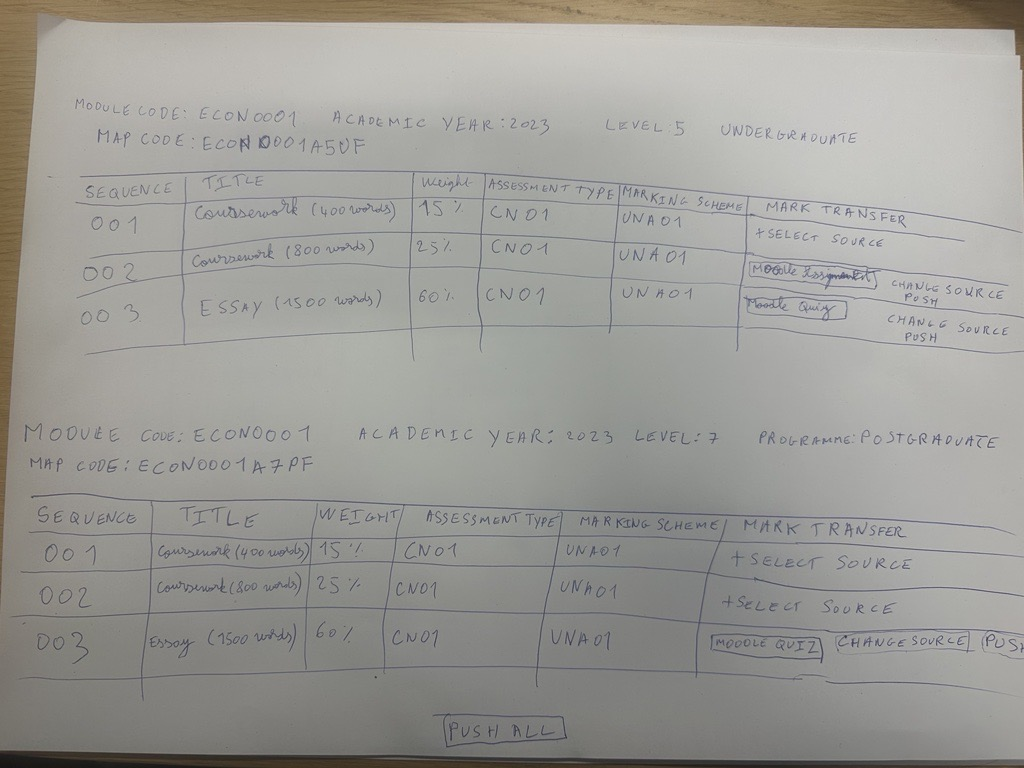 MODULE CODE: ECON0001 ACADEMIC YEAR: 2023 LEVEL: 5 UNDERGRADUATE
MAP CODE: ECON0001A5UF
SEQUENCE TITLE Weight ASSESSMENT TYPE MARKING SCHEME MARK TRANSFER
001 Coursework (400 words) 15% CN01 UNA01 + SELECT SOURCE
002 Coursework (800 words) 25% CN01 UNA01 Moodle Assignment CHANGE SOURCE
PUSH
003 ESSAY (1500 words) 60% CN01 UNA01 Moodle Quiz CHANGE SOURCE
PUSH
MODULE CODE: ECON0001 ACADEMIC YEAR: 2023 LEVEL: 7 PROGRAMME: POSTGRADUATE
MAP CODE: ECON0001A7PF
SEQUENCE TITLE WEIGHT ASSESSMENT TYPE MARKING SCHEME MARK TRANSFER
001 Coursework (400 words) 15% CN01 UNA01 + SELECT SOURCE
002 Coursework (800 words) 25% CN01 UNA01 + SELECT SOURCE
003 Essay (1500 words) 60% CN01 UNA01 MOODLE QUIZ CHANGE SOURCE PUSH
PUSH ALL